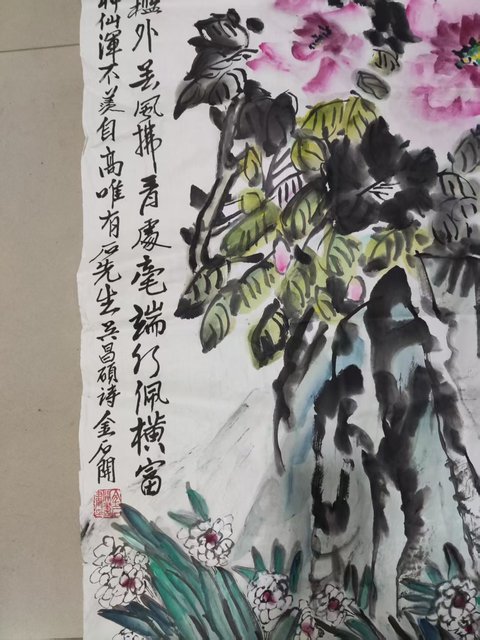 檻外春風拂香處毫端水佩橫富
神仙渾不羨自高唯有石先生吴昌碩詩 金石開